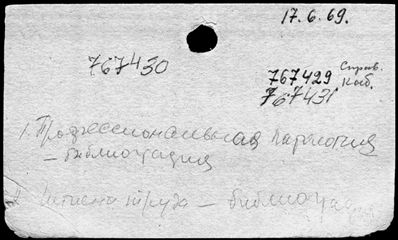 17.6.69.
767430
767429 Справ.
767431 Каб.
1. Профессиональная патология
– библиография
2. Гигиена труда – библиогра